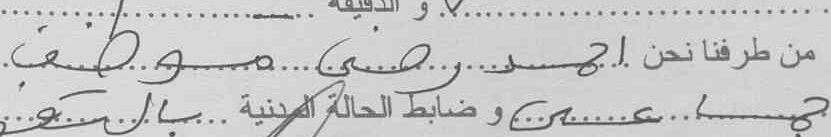 و الدقيقة
من طرفنا نحن احمد رضى موظف
جماعي و ضابط الحالة المدنية بالتفويض